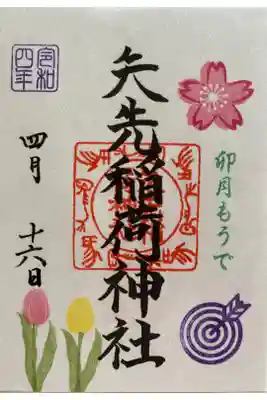 卯月もうで
矢先稲荷神社
令和
四年
四月
十六日